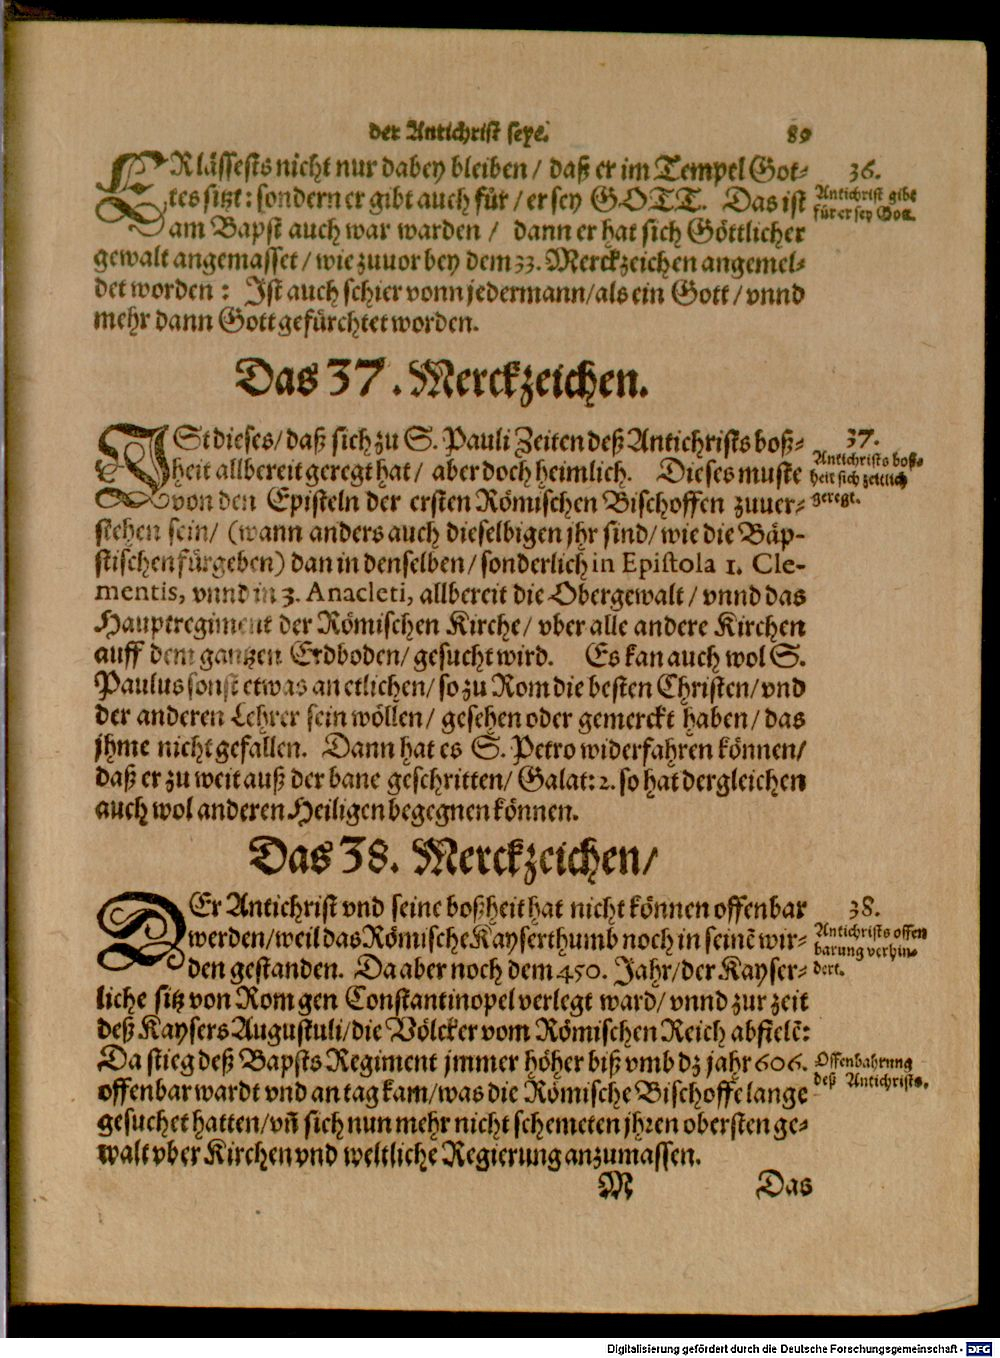 der Antichrist seye.
89
ERlässests nicht nur dabey bleiben / daß er im Tempel Got-
tes sitzt: sondern er gibt auch für / er sey GOTT. Das ist
am Bapst auch war warden / dann er hat sich Göttlicher
gewalt angemasset / wie zuuor bey dem 33. Merckzeichen angemel-
det worden : Ist auch schier vonn jedermann/als ein Gott / vnnd
mehr dann Gott gefürchtet worden.
36.
Antichrist gibt
für er sey Gott.
Das 37. Merckzeichen.
ISt dieses/ daß sich zu S. Pauli Zeiten deß Antichrists boß-
heit allbereit geregt hat / aber doch heimlich. Dieses muste
von den Episteln der ersten Römischen Bischoffen zuuer-
stehen sein/ (wann anders auch dieselbigen jhr sind/ wie die Bäp-
stischen fürgeben) dan in denselben/ sonderlich in Epistola 1. Cle-
mentis, vnnd in 3. Anacleti, allbereit die Obergewalt / vnnd das
Hauptregiment der Römischen Kirche/ vber alle andere Kirchen
auff dem gantzen Erdboden/ gesucht wird. Es kan auch wol S.
Paulus sonst etwas an etlichen/ so zu Rom die besten Christen/ vnd
der anderen Lehrer sein wöllen/ gesehen oder gemerckt haben/ das
jhme nicht gefallen. Dann hat es S. Petro widerfahren können/
daß er zu weit auß der bane geschritten/ Galat: 2. so hat dergleichen
auch wol anderen Heiligen begegnen können.
37.
Antichrists boß-
heit sich zeitlich
geregt.
Das 38. Merckzeichen/
DEr Antichrist vnd seine boßheit hat nicht können offenbar
werden/weil das Römische Kayserthumb noch in seinẽ wir-
den gestanden. Da aber noch dem 450. Jahr/der Kayser-
liche sitz von Rom gen Constantinopel verlegt ward/ vnnd zur zeit
deß Kaysers Augustuli/die Völcker vom Römischen Reich abfielẽ:
Da stieg deß Bapsts Regiment jmmer höher biß vmb dz jahr 606.
offenbar wardt vnd an tag kam/was die Römische Bischoffe lange
gesuchet hatten/vñ sich nun mehr nicht schemeten jhren obersten ge-
walt vber Kirchen vnd weltliche Regierung anzumassen.
38.
Antichrists offen
barung verhin-
dert.
Offenbahrung
deß Antichrists.
M
Das
Digitalisierung gefördert durch die Deutsche Forschungsgemeinschaft - DFG